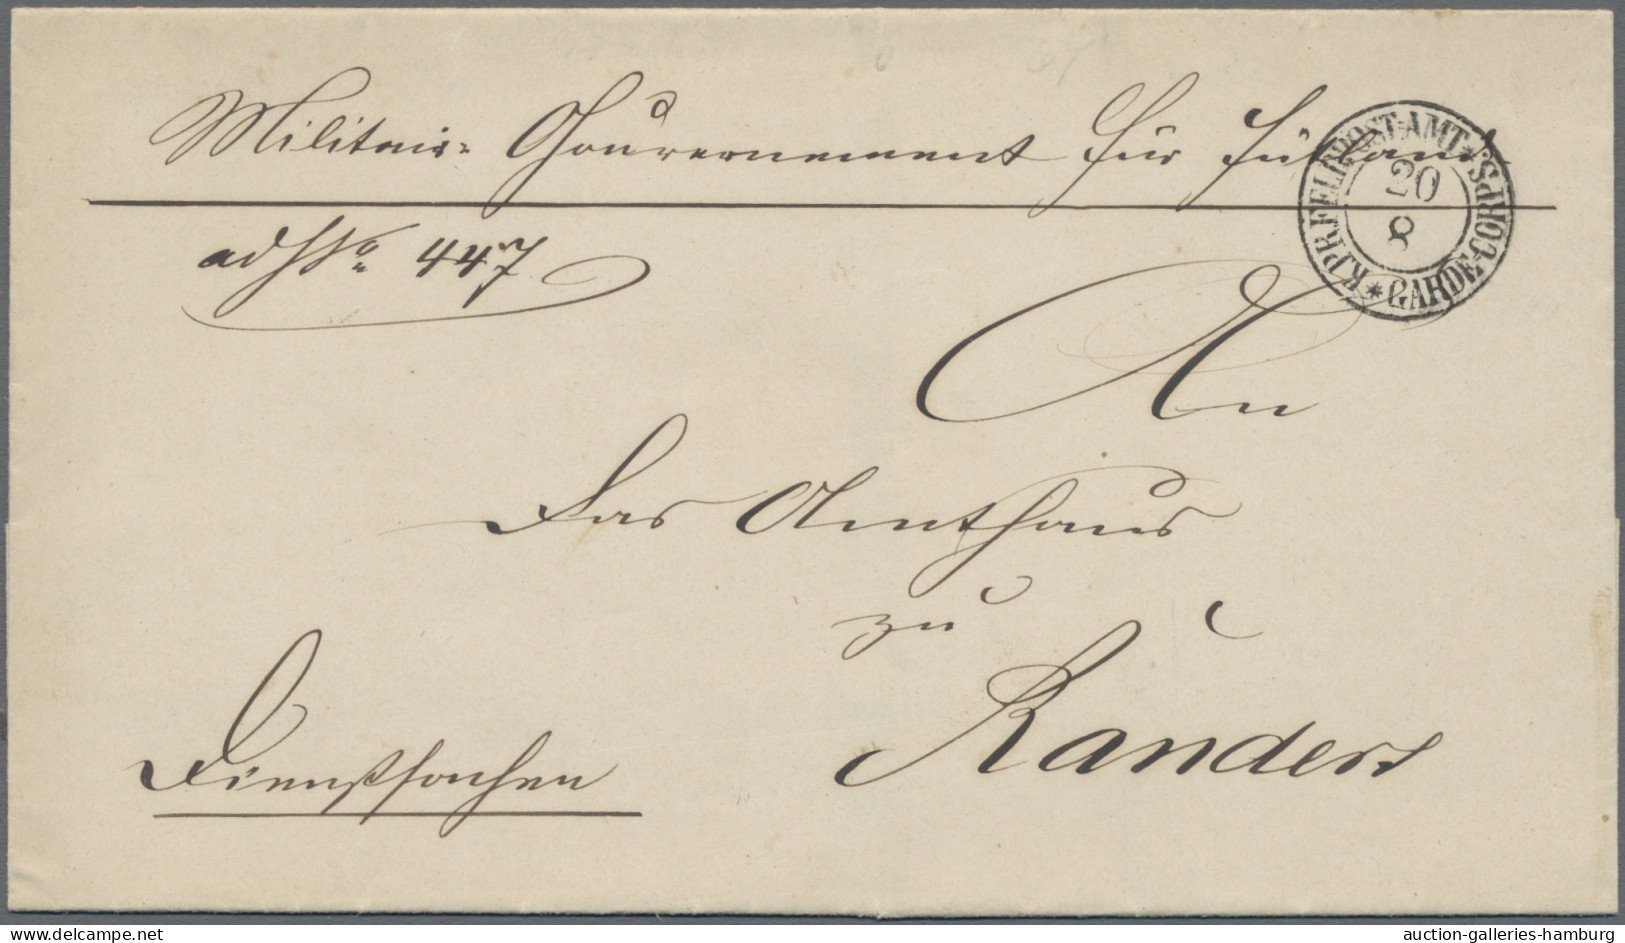 Militair= Gouvernement für Jütland
K.PR.FELDPOST-AMT * GARDE-CORPS. *
20
8
ad No. 447
An
Das Amthaus
zu
Randers
Dienstsachen
www.delcampe.net
auction-galleries-hamburg